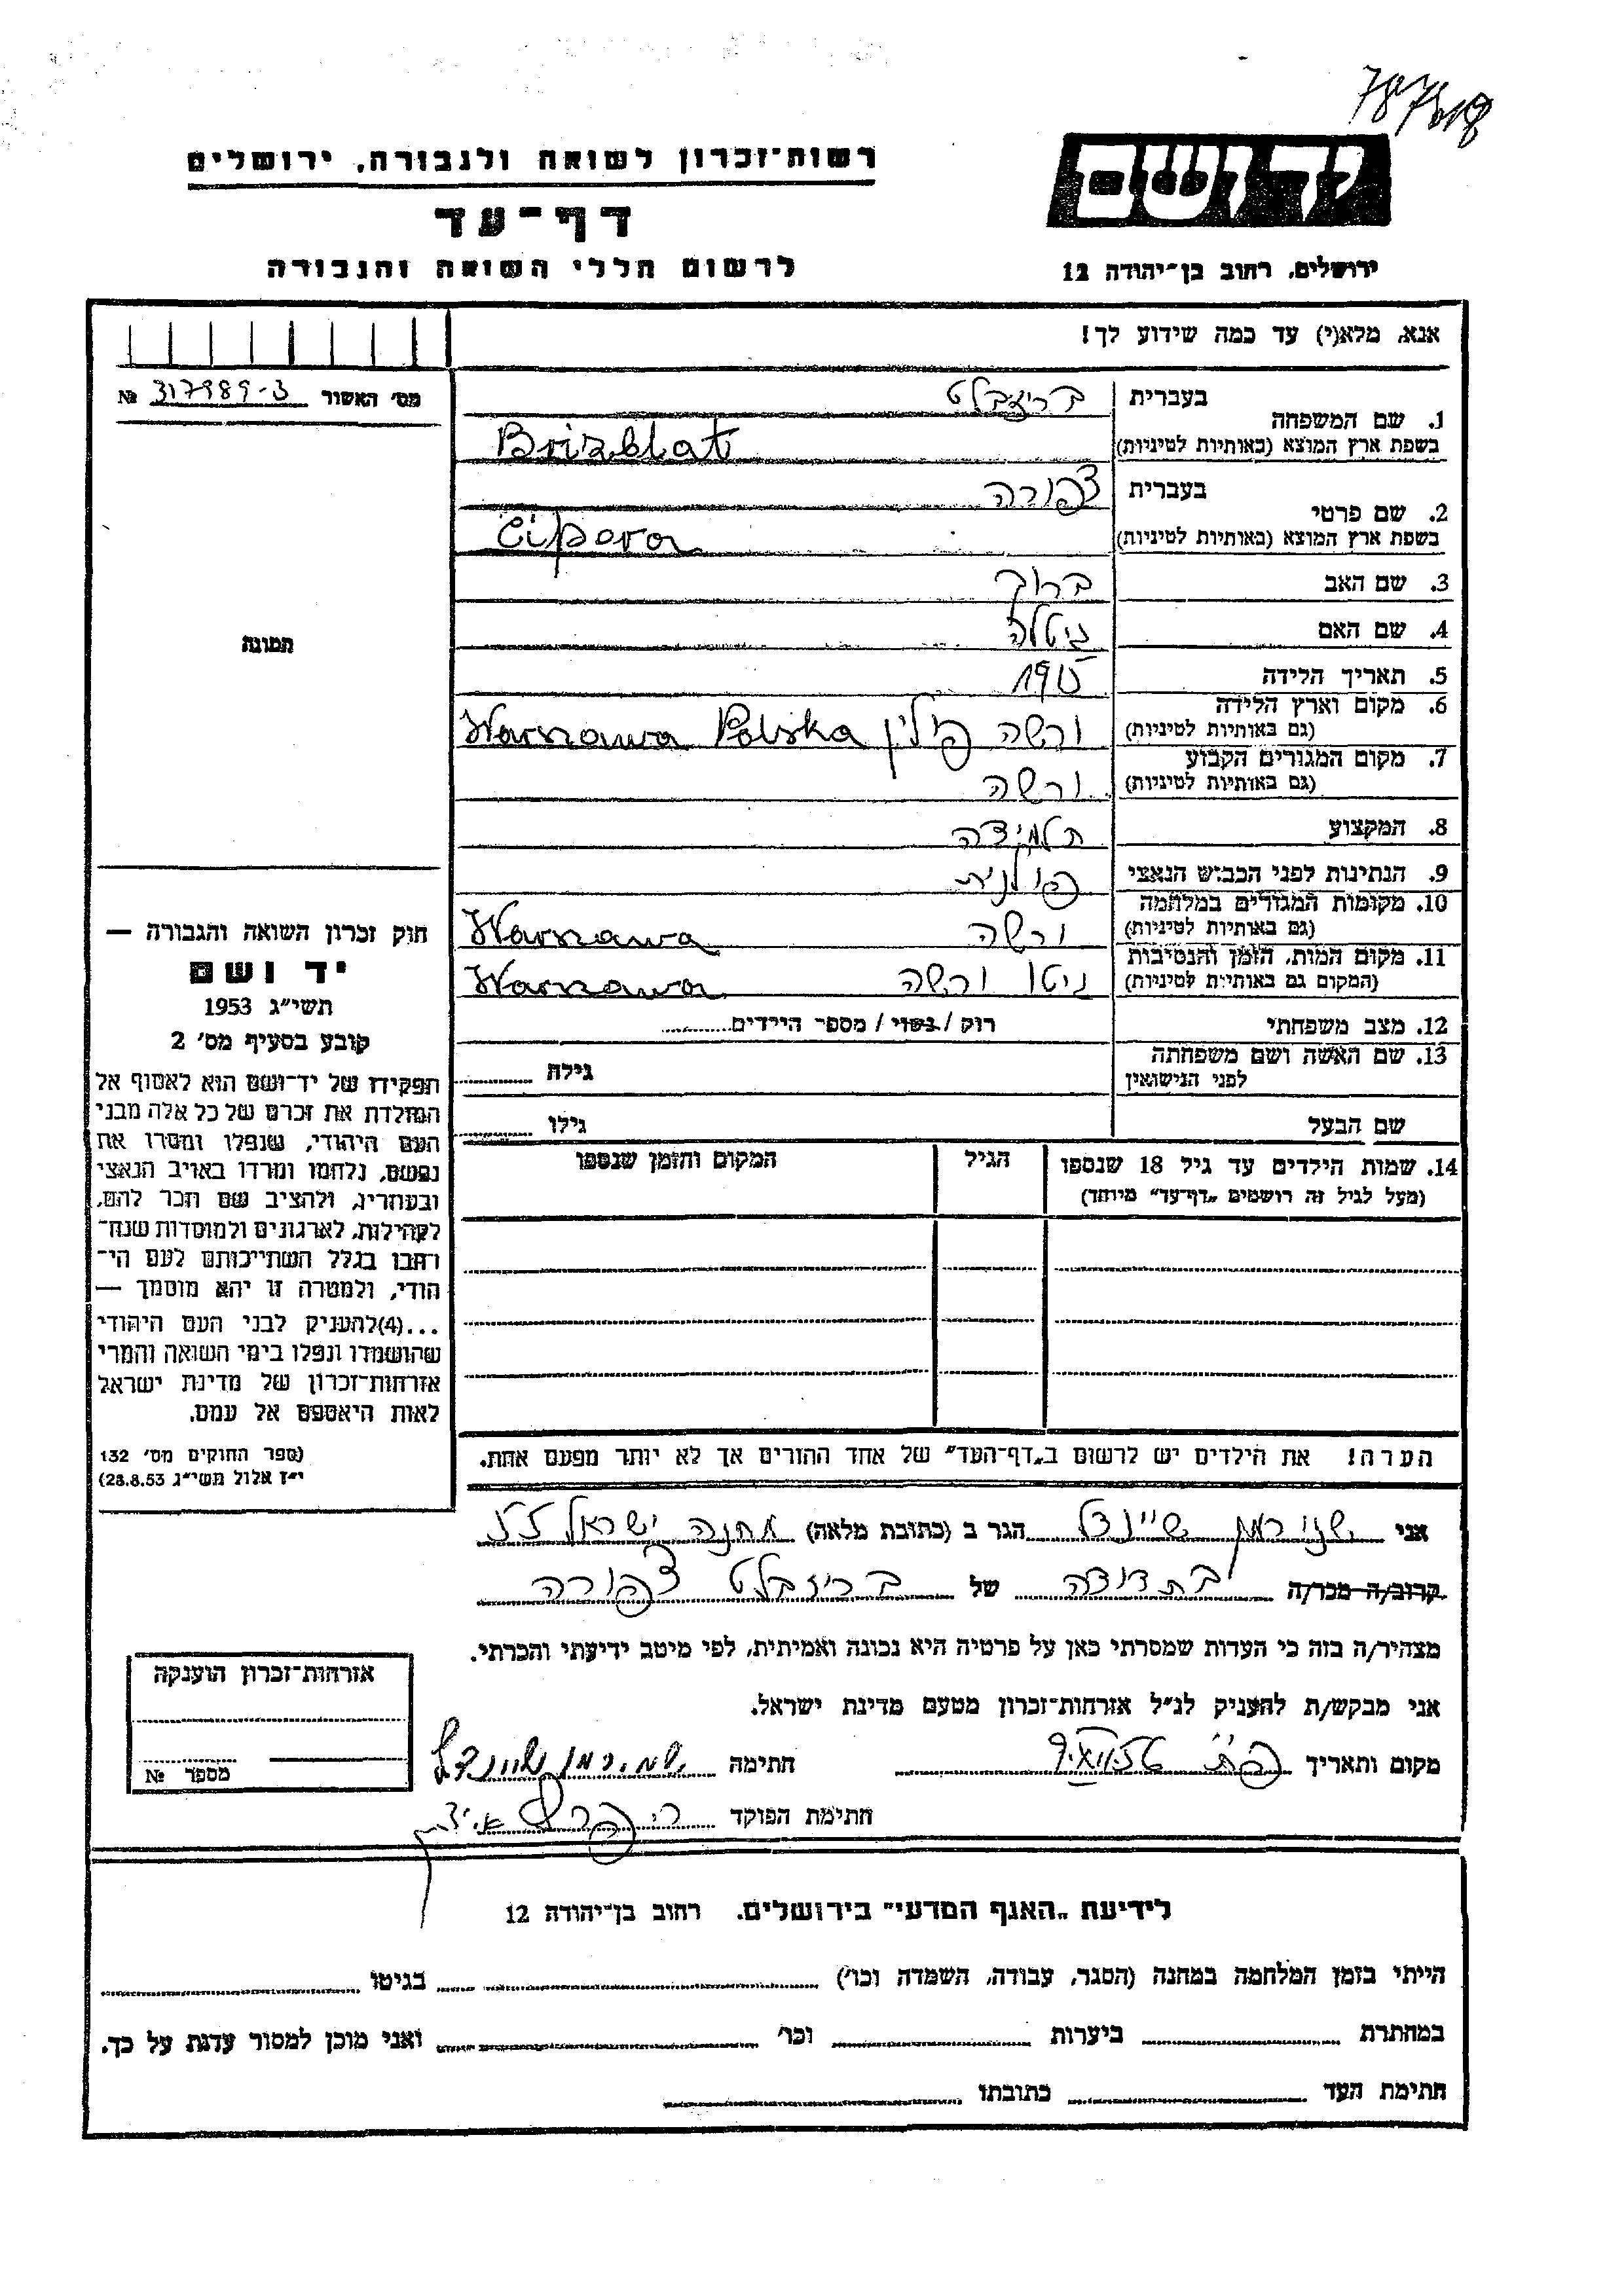 787518
יד ושם
רשות־זכרון לשואה ולגבורה, ירושלים
דף־עד
לרשום חללי השואה והגבורה
ירושלים, רחוב בן־יהודה 12
אנא, מלא(י) עד כמה שידוע לך!
מס׳ האשור № 317989-3
1. שם המשפחה בעברית בריזבלט
בשפת ארץ המוצא (באותיות לטיניות) Brizblat
2. שם פרטי בעברית צפורה
בשפת ארץ המוצא (באותיות לטיניות) Cipora
3. שם האב ברוך
4. שם האם גיטלה
5. תאריך הלידה
6. מקום וארץ הלידה (גם באותיות לטיניות) ורשה פולין Warszawa Polska
7. מקום המגורים הקבוע (גם באותיות לטיניות) ורשה
8. המקצוע תלמידה
9. הנתינות לפני הכבוש הנאצי פולנית
10. מקומות המגורים במלחמה (גם באותיות לטיניות) ורשה Warszawa
11. מקום המות, הזמן והנסיבות (המקום גם באותיות לטיניות) גיטו ורשה Warszawa
12. מצב משפחתי רוק / נשוי / מספר הילדים
13. שם האשה ושם משפחתה לפני הנישואין גילה
שם הבעל גילו
14. שמות הילדים עד גיל 18 שנספו (מעל לגיל זה רושמים „דף־עד” מיוחד) הגיל המקום והזמן שנספו
הערה! את הילדים יש לרשום ב„דף־העד” של אחד ההורים אך לא יותר מפעם אחת.
תמונה
חוק זכרון השואה והגבורה —
יד ושם
תשי״ג 1953
קובע בסעיף מס׳ 2
תפקידו של יד־ושם הוא לאסוף אל
המולדת את זכרם של כל אלה מבני
העם היהודי, שנפלו ומסרו את
נפשם, נלחמו ומרדו באויב הנאצי
ובעוזריו, ולהציב שם וזכר להם,
לקהילות, לארגונים ולמוסדות שנח־
רבו בגלל השתייכותם לעם הי־
הודי, ולמטרה זו יהא מוסמך —
...(4)להעניק לבני העם היהודי
שהושמדו ונפלו בימי השואה והמרי
אזרחות־זכרון של מדינת ישראל
לאות היאספם אל עמם.
(ספר החוקים מס׳ 132
י״ז אלול תשי״ג 28.8.53)
אני שנירמן שיינדל הגר ב (כתובת מלאה) מחנה ישראל
קרוב/ה מכר/ה בת דודה של בריזבלט צפורה
מצהיר/ה בזה כי העדות שמסרתי כאן על פרטיה היא נכונה ואמיתית, לפי מיטב ידיעתי והכרתי.
אני מבקש/ת להעניק לנ״ל אזרחות־זכרון מטעם מדינת ישראל.
מקום ותאריך חתימה
חתימת הפוקד
אזרחות־זכרון הוענקה
מספר №
לידיעת „האגף המדעי” בירושלים. רחוב בן־יהודה 12
הייתי בזמן המלחמה במחנה (הסגר, עבודה, השמדה וכו׳) בגיטו
במחתרת ביערות וכו׳ ואני מוכן למסור עדות על כך.
חתימת העד כתובתו